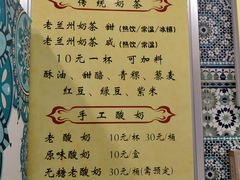 传统奶茶
老兰州奶茶 甜(热饮/常温/冰镇)
老兰州奶茶 咸(热饮/常温)
10元一杯 可加料
酥油、甜醅、青稞、藜麦
红豆、绿豆、紫米
手工酸奶
老酸奶 10元/杯 30元/桶
原味酸奶 10元/盒
无糖老酸奶 30元/桶(需预定)